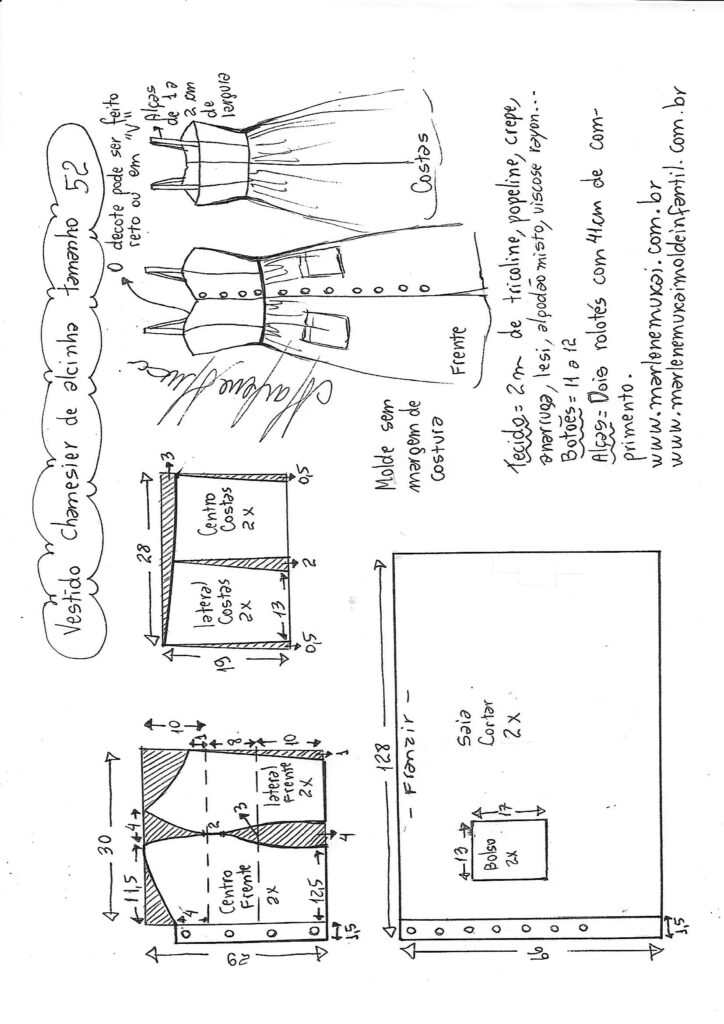 Vestido chamesier de alcinha tamanho 52
O decote pode ser feito
reto ou em "V"
Alças
de 1 a
2 cm
de
largura
Frente
Costas
28
3
19
lateral
Costas
2x
Centro
Costas
2x
13
0,5
2
0,5
Molde sem
margem de
costura
30
10
11,5
4
4
1
8
10
2
3
Centro
Frente
2x
lateral
Frente
2x
12,5
4
1
29
1,5
Tecido = 2m de tricoline, popeline, crepe,
anarruga, lesi, algodão misto, viscose rayon...
Botões = 11 a 12
Alças = Dois rolotés com 41cm de com-
primento.
www.marlenemukai.com.br
www.marlenemukaimoldeinfantil.com.br
128
- Franzir -
Saia
Cortar
2x
13
17
Bolso
2x
66
1,5